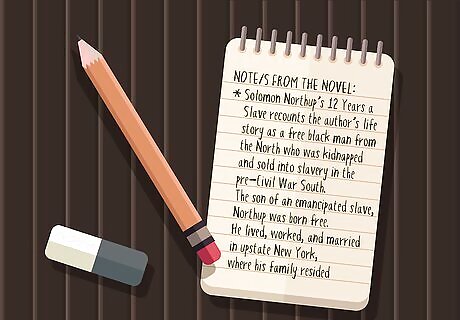 NOTE/S FROM THE NOVEL:
* Solomon Northup's 12 Years a
Slave recounts the author's life
story as a free black man from
the North who was kidnapped
and sold into slavery in the
pre-Civil War South.
The son of an emancipated slave,
Northup was born free.
He lived, worked, and married
in upstate New York,
where his family resided